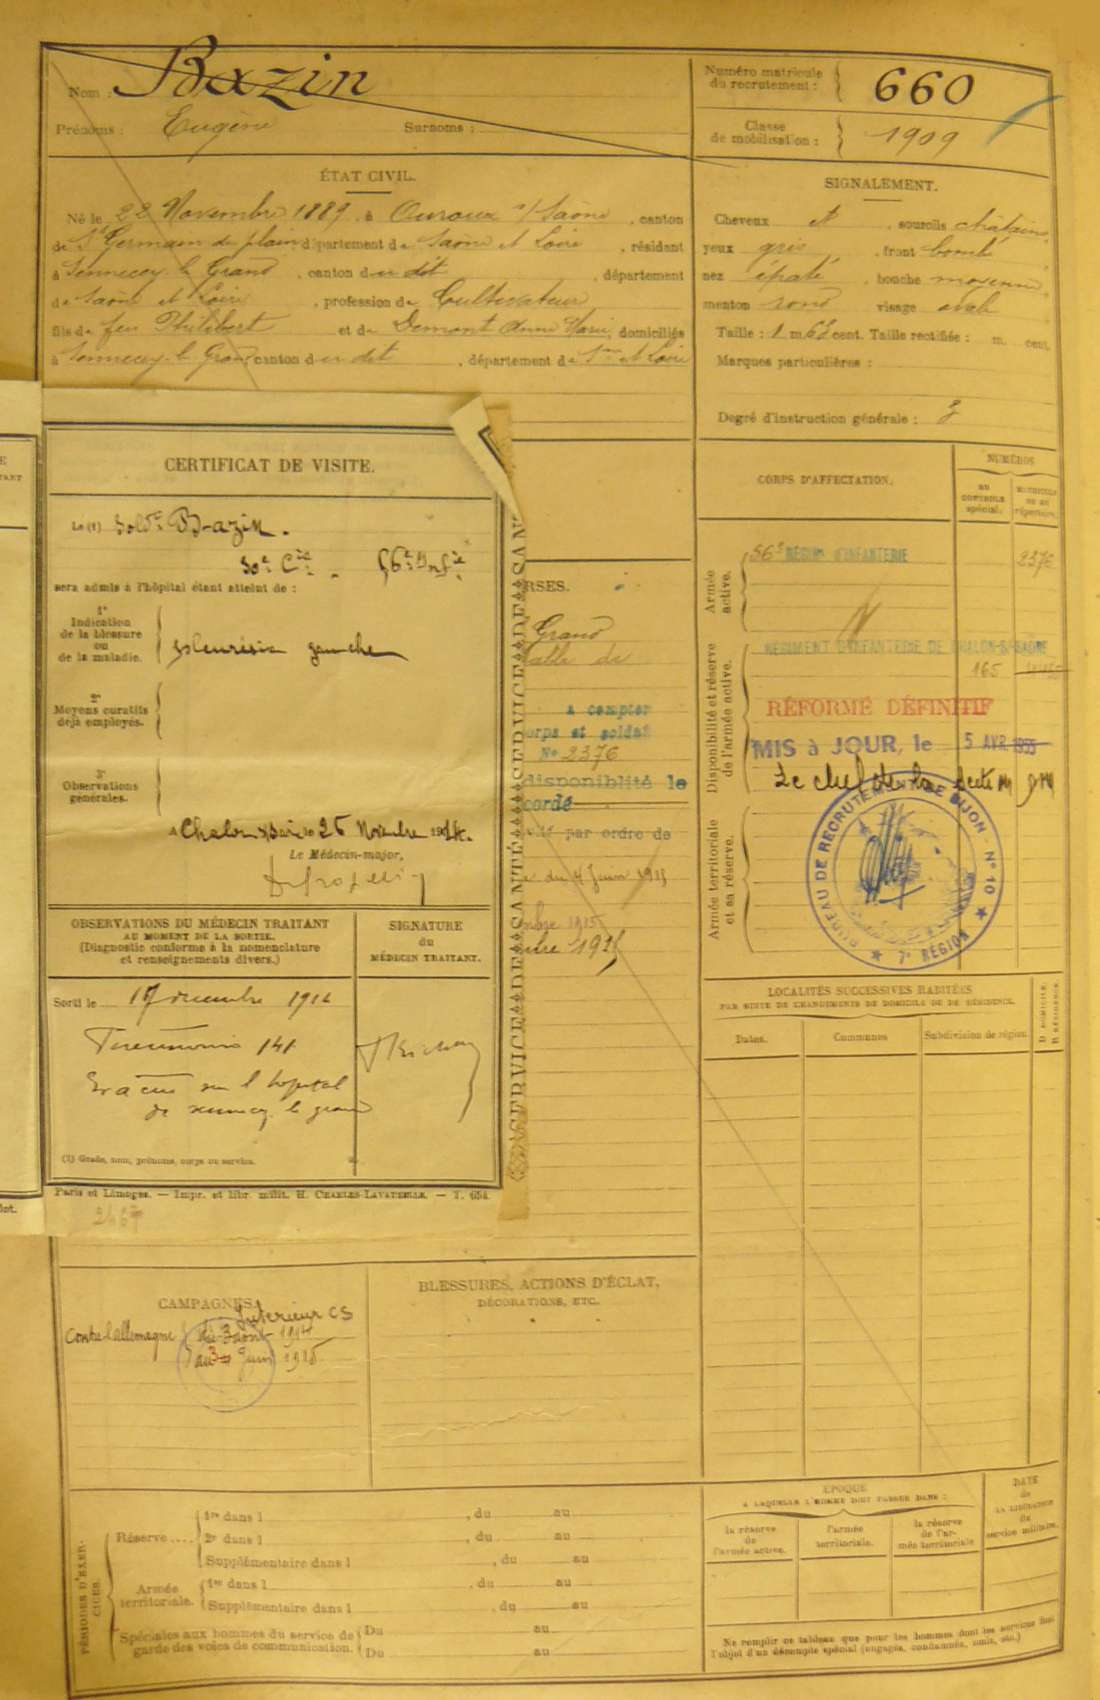 Nom : Bazin
Prénoms : Eugène Surnoms :
Numéro matricule du recrutement : 660
Classe de mobilisation : 1909
ÉTAT CIVIL.
Né le 22 Novembre 1889, à Ouroux s/Saône, canton
de St Germain du plain département de Saône et Loire, résidant
à Sennecey le Grand, canton du dit, département
de Saône et Loire, profession de Cultivateur
fils de feu Philibert et de Demont Anne Marie, domiciliés
à Sennecey le Grand canton du dit, département de Sne et Loire
SIGNALEMENT.
Cheveux et, sourcils châtains,
yeux gris, front bombé
nez épaté, bouche moyenne,
menton rond visage ovale
Taille : 1 m. 63 cent. Taille rectifiée : m. cent.
Marques particulières :
Degré d'instruction générale : 3
CERTIFICAT DE VISITE.
Le (1) Soldt Bazin.
30e Cie. 56e Infie
sera admis à l'hôpital étant atteint de :
1°
Indication
de la blessure
ou
de la maladie.
pleurésie gauche
2°
Moyens curatifs
déjà employés.
3°
Observations
générales.
A Chalon s/Saône le 26 Novembre 1914.
Le Médecin-major,
OBSERVATIONS DU MÉDECIN TRAITANT
AU MOMENT DE LA SORTIE.
(Diagnostic conforme à la nomenclature
et renseignements divers.)
SIGNATURE
du
MÉDECIN TRAITANT.
Sorti le 17 décembre 1914
Evacué sur l'hopital
de sennecey le grand
(1) Grade, nom, prénoms, corps ou service.
Paris et Limoges. — Impr. et libr. milit. H. CHARLES-LAVAUZELLE. — T. 654
2467
RSES.
Grand
able de
à compter
orps et soldat
No 2376
disponiblité le
cordé
par ordre de
du 4 Juin 1915
mbre 1915
CORPS D'AFFECTATION.
NUMÉROS
au
contrôle
spécial.
matricule
ou au
répertoire.
Armée
active.
56e RÉGIM. D'INFANTERIE 2376
Disponibilité et réserve
de l'armée active.
RÉGIMENT D'INFANTERIE DE CHALON-S/-SAÔNE
165
RÉFORMÉ DÉFINITIF
MIS à JOUR, le 5 AVR. 1955
Le chef de la
Armée territoriale
et sa réserve.
BUREAU DE RECRUTEMENT DE DIJON - N° 10
7e RÉGION
LOCALITÉS SUCCESSIVES HABITÉES
PAR SUITE DE CHANGEMENTS DE DOMICILE OU DE RÉSIDENCE.
Dates. Communes Subdivision de région
D DOMICILE.
R RÉSIDENCE.
CAMPAGNES.
Intérieur CS
Contre l'allemagne du 3 août 1914
au 4 Juin 1915
BLESSURES, ACTIONS D'ÉCLAT,
DÉCORATIONS, ETC.
PÉRIODES D'EXERCICES.
Réserve....
1re dans l , du au
2e dans l , du au
Supplémentaire dans l , du au
Armée
territoriale.
1re dans l , du au
Supplémentaire dans l , du au
Spéciales aux hommes du service de
garde des voies de communication.
Du au
Du au
ÉPOQUE
A LAQUELLE L'HOMME DOIT PASSER DANS :
la réserve
de
l'armée active.
l'armée
territoriale.
la réserve
de l'ar-
mée territoriale
DATE
de
LA LIBÉRATION
du
service militaire.
Ne remplir ce tableau que pour les hommes dont les services font
l'objet d'un décompte spécial (engagés, condamnés, omis, etc.)